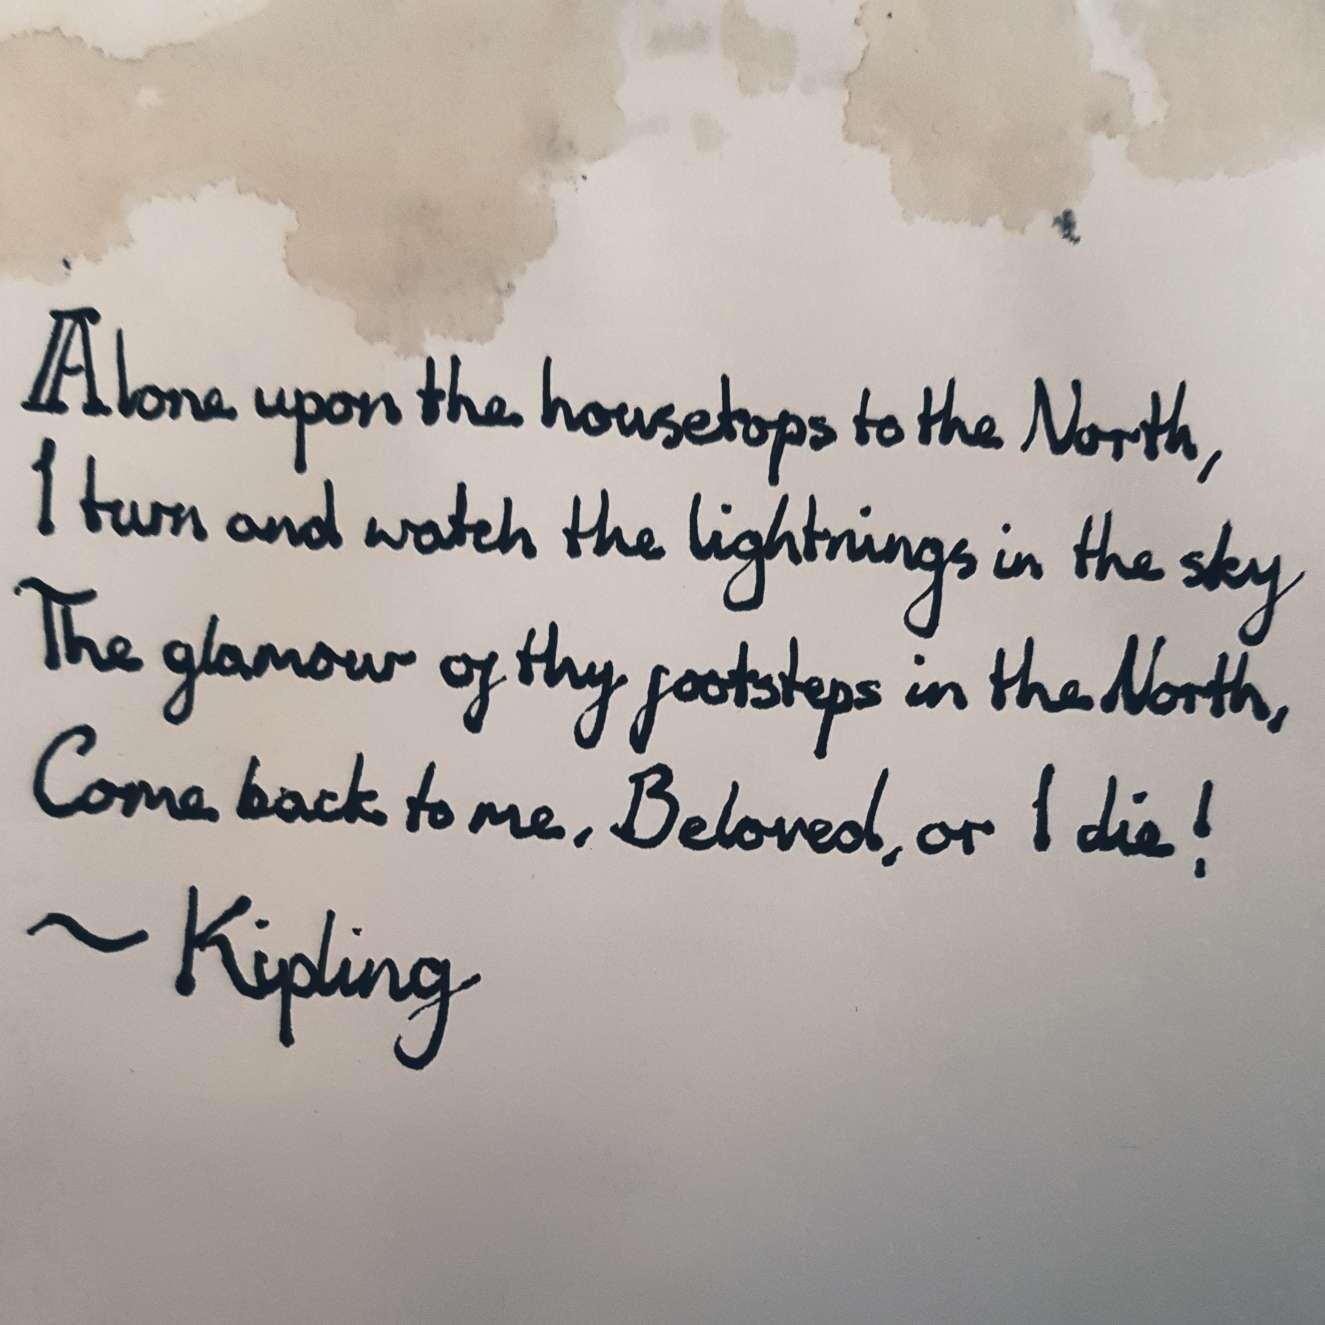 Alone upon the housetops to the North,
I turn and watch the lightnings in the sky
The glamour of thy footsteps in the North,
Come back to me, Beloved, or I die!
~ Kipling